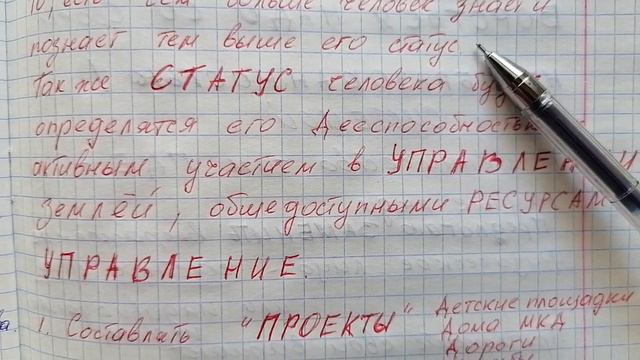 то, есть чем больше человек знает и
познает тем выше его статус
также СТАТУС человека
определятся его Дееспособностью
активным участием в
землёй, общедоступными РЕСУРСАМ
УПРАВЛЕНИЕ.
1. Составлять "ПРОЕКТЫ" Детские площадки
Дома МКД
Дороги